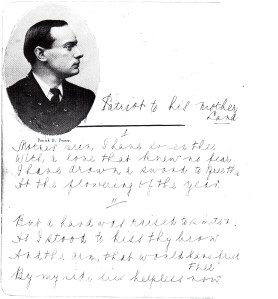 Patrick H. Pearse.
Patriot to his mother
Land
I
Mother mine I have loved thee
With a love that knew no fear
I have drawn a sword to
At the flowering of the year
II
But a hand was raised to
As I stood to kiss thy brow
And the arm that would have freed
Thee
By my side lies helpless now